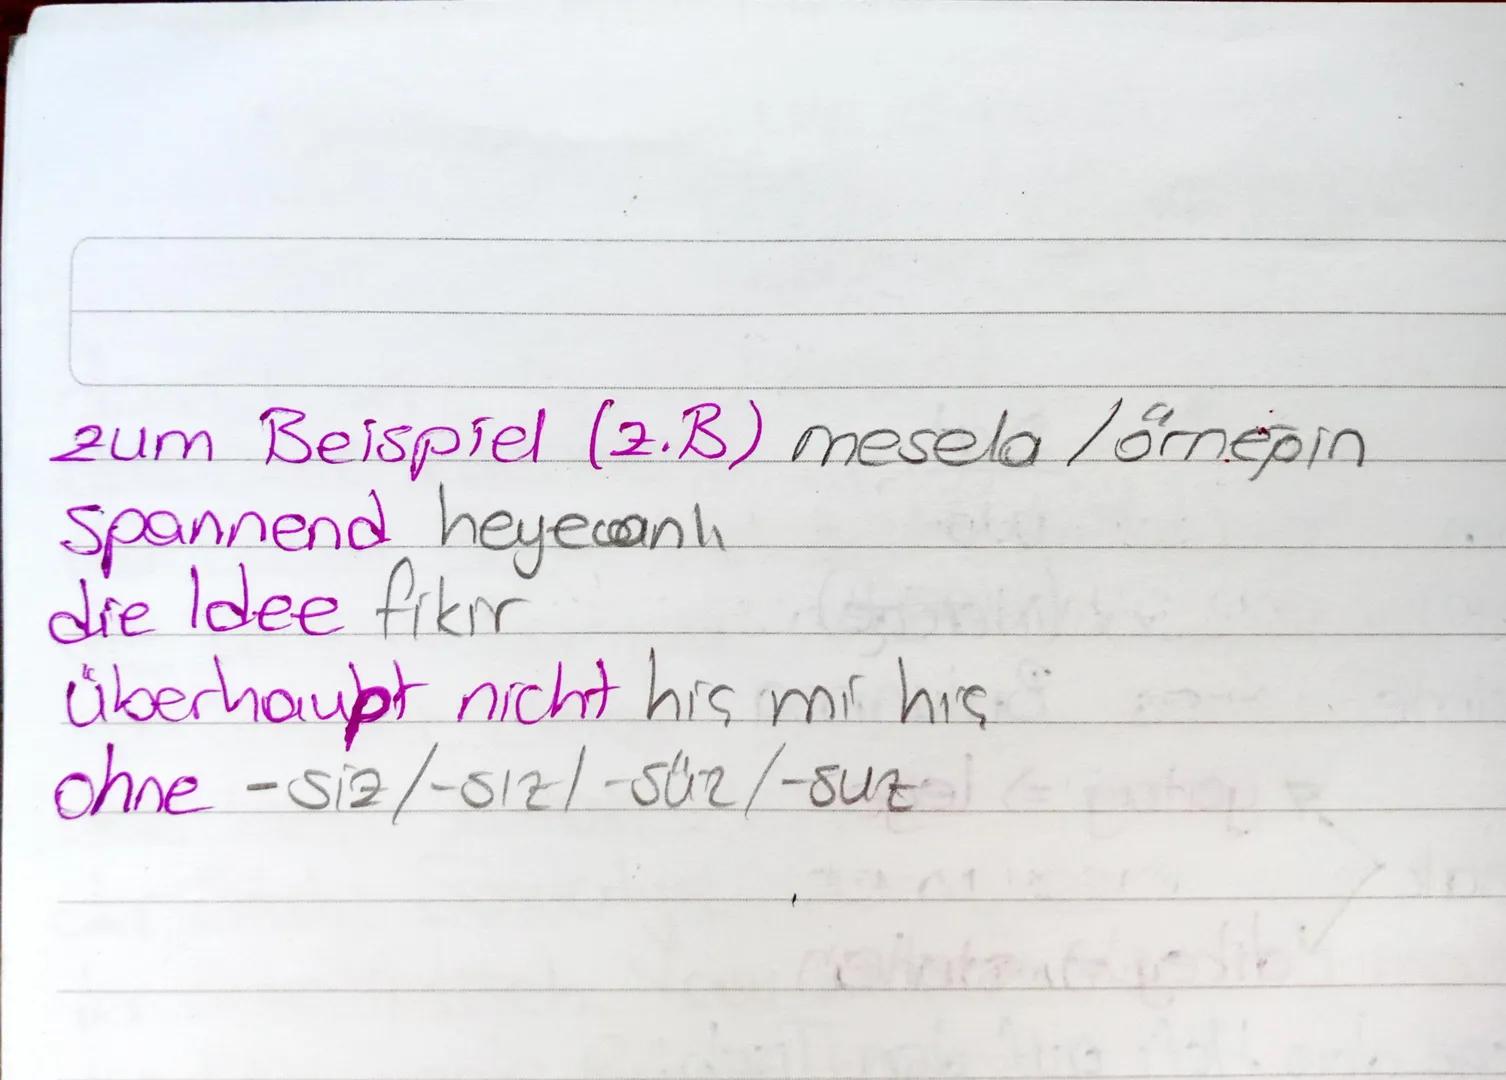 zum Beispiel (z.B) mesela / örneğin
spannend heyecanlı
die Idee fikir
überhaupt nicht hiç mi hiç
ohne -siz/-sız/-süz/-suz